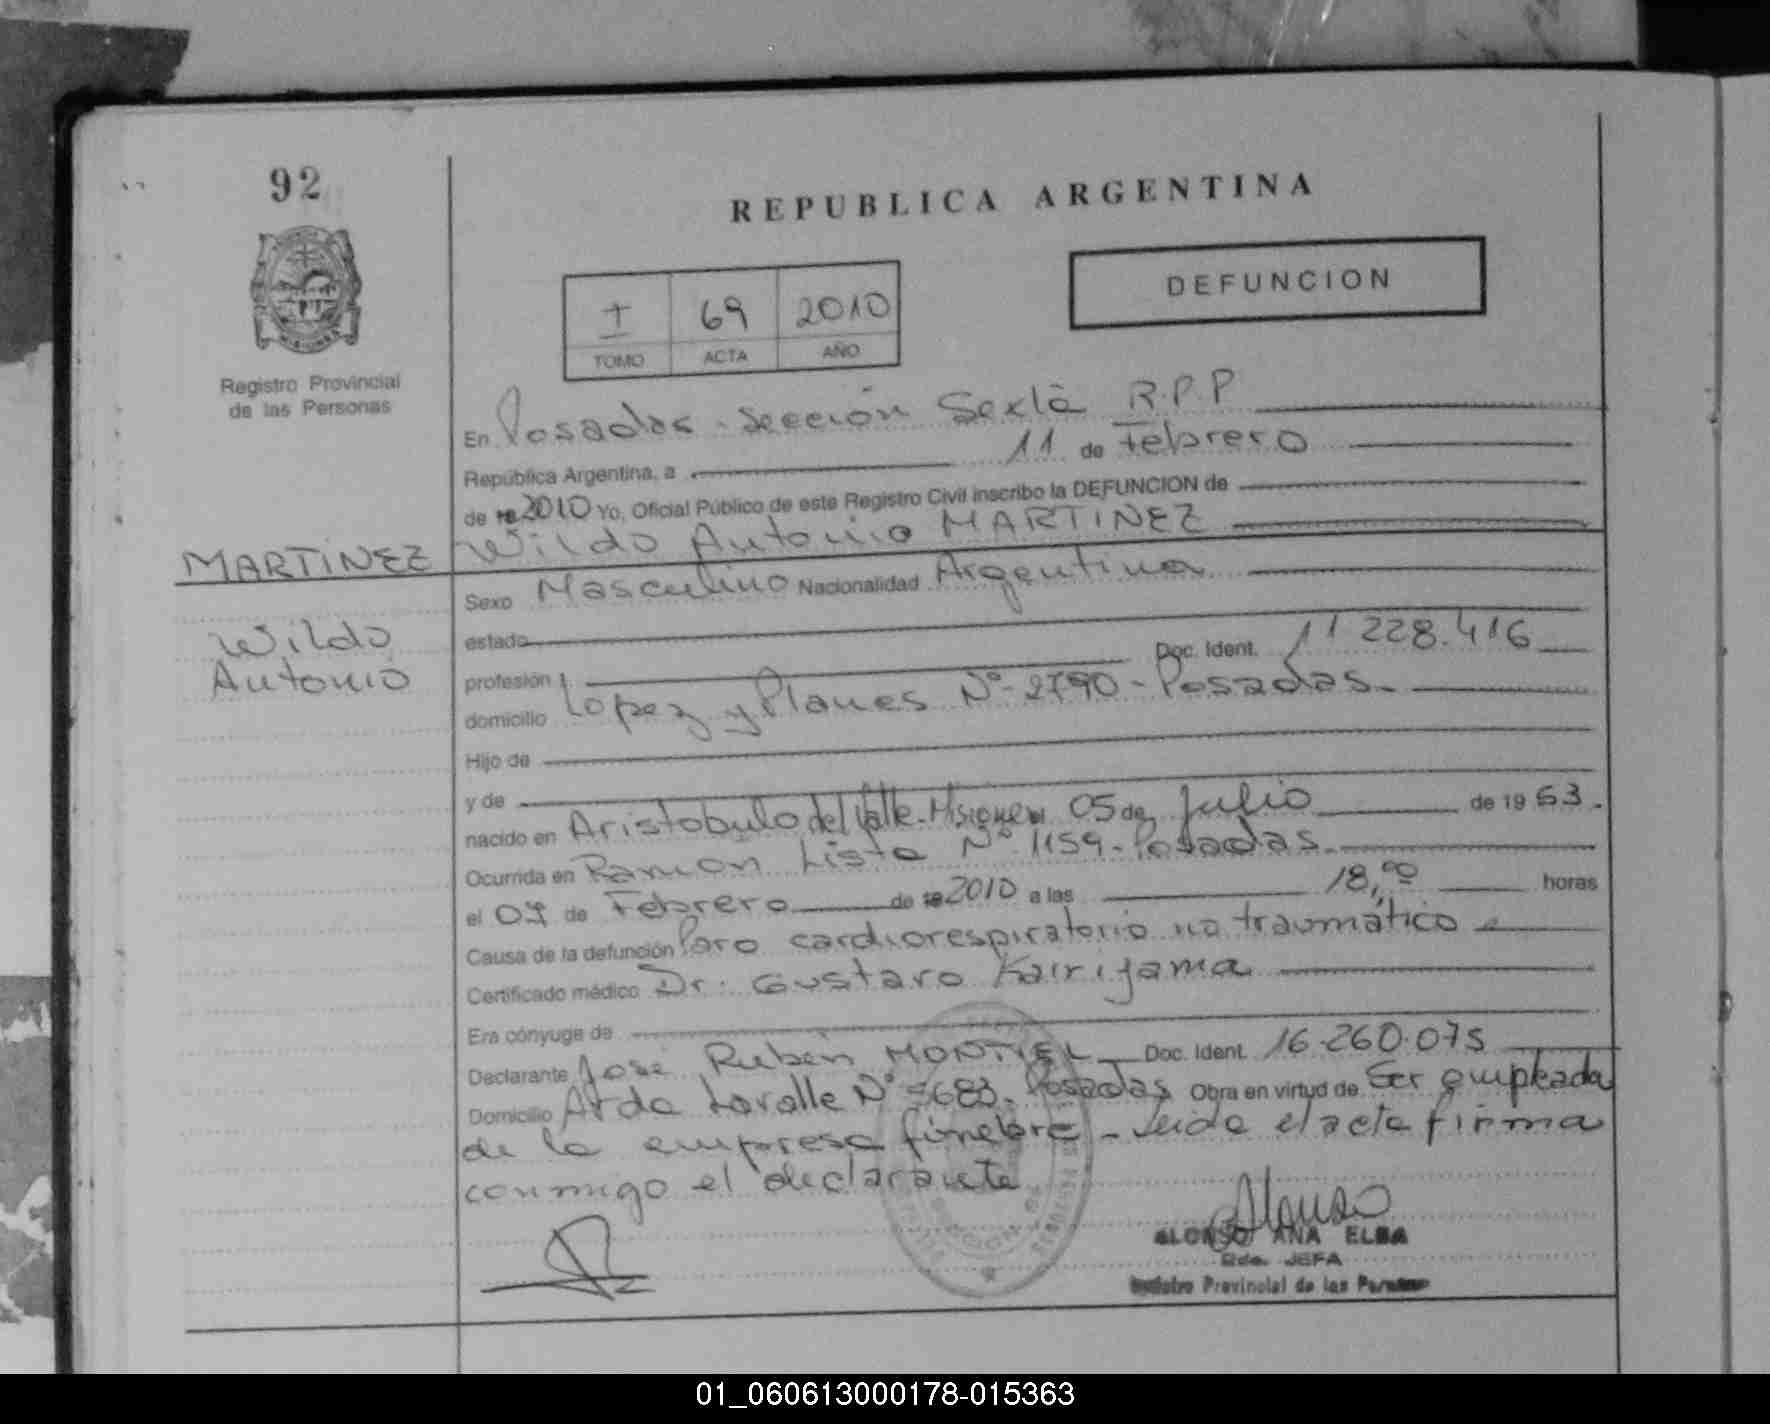 92
REPUBLICA ARGENTINA
DEFUNCION
I 69 2010
TOMO ACTA AÑO
Registro Provincial
de las Personas
En Posadas - Sección Sexta R.P.P
República Argentina, a 11 de Febrero
de 2010 Yo, Oficial Público de este Registro Civil inscribo la DEFUNCION de
Wildo Antonio MARTINEZ
MARTINEZ
Wildo
Antonio
Sexo Masculino Nacionalidad Argentina
estado
profesión Doc. Ident. 11 228.416
domicilio Lopez y Planes Nº 2790 - Posadas.
Hijo de
y de
nacido en Aristobulo del Valle - Misiones 05 de Julio de 19
Ocurrida en Ramón Lista Nº 1159 - Posadas.
el 07 de Febrero de 2010 a las 18,00 horas
Causa de la defunción Paro cardiorespiratorio no traumático
Certificado médico Dr. Gustavo
Era cónyuge de
Declarante José Ruben MONTIEL Doc. Ident. 16.260.075
Domicilio Avda Lavalle Nº Posadas Obra en virtud de Ser empleado
de la empresa fúnebre - Leida el acta firma
conmigo el declarante
ALONSO ANA ELBA
JEFA
Registro Provincial de las Personas
01_060613000178-015363